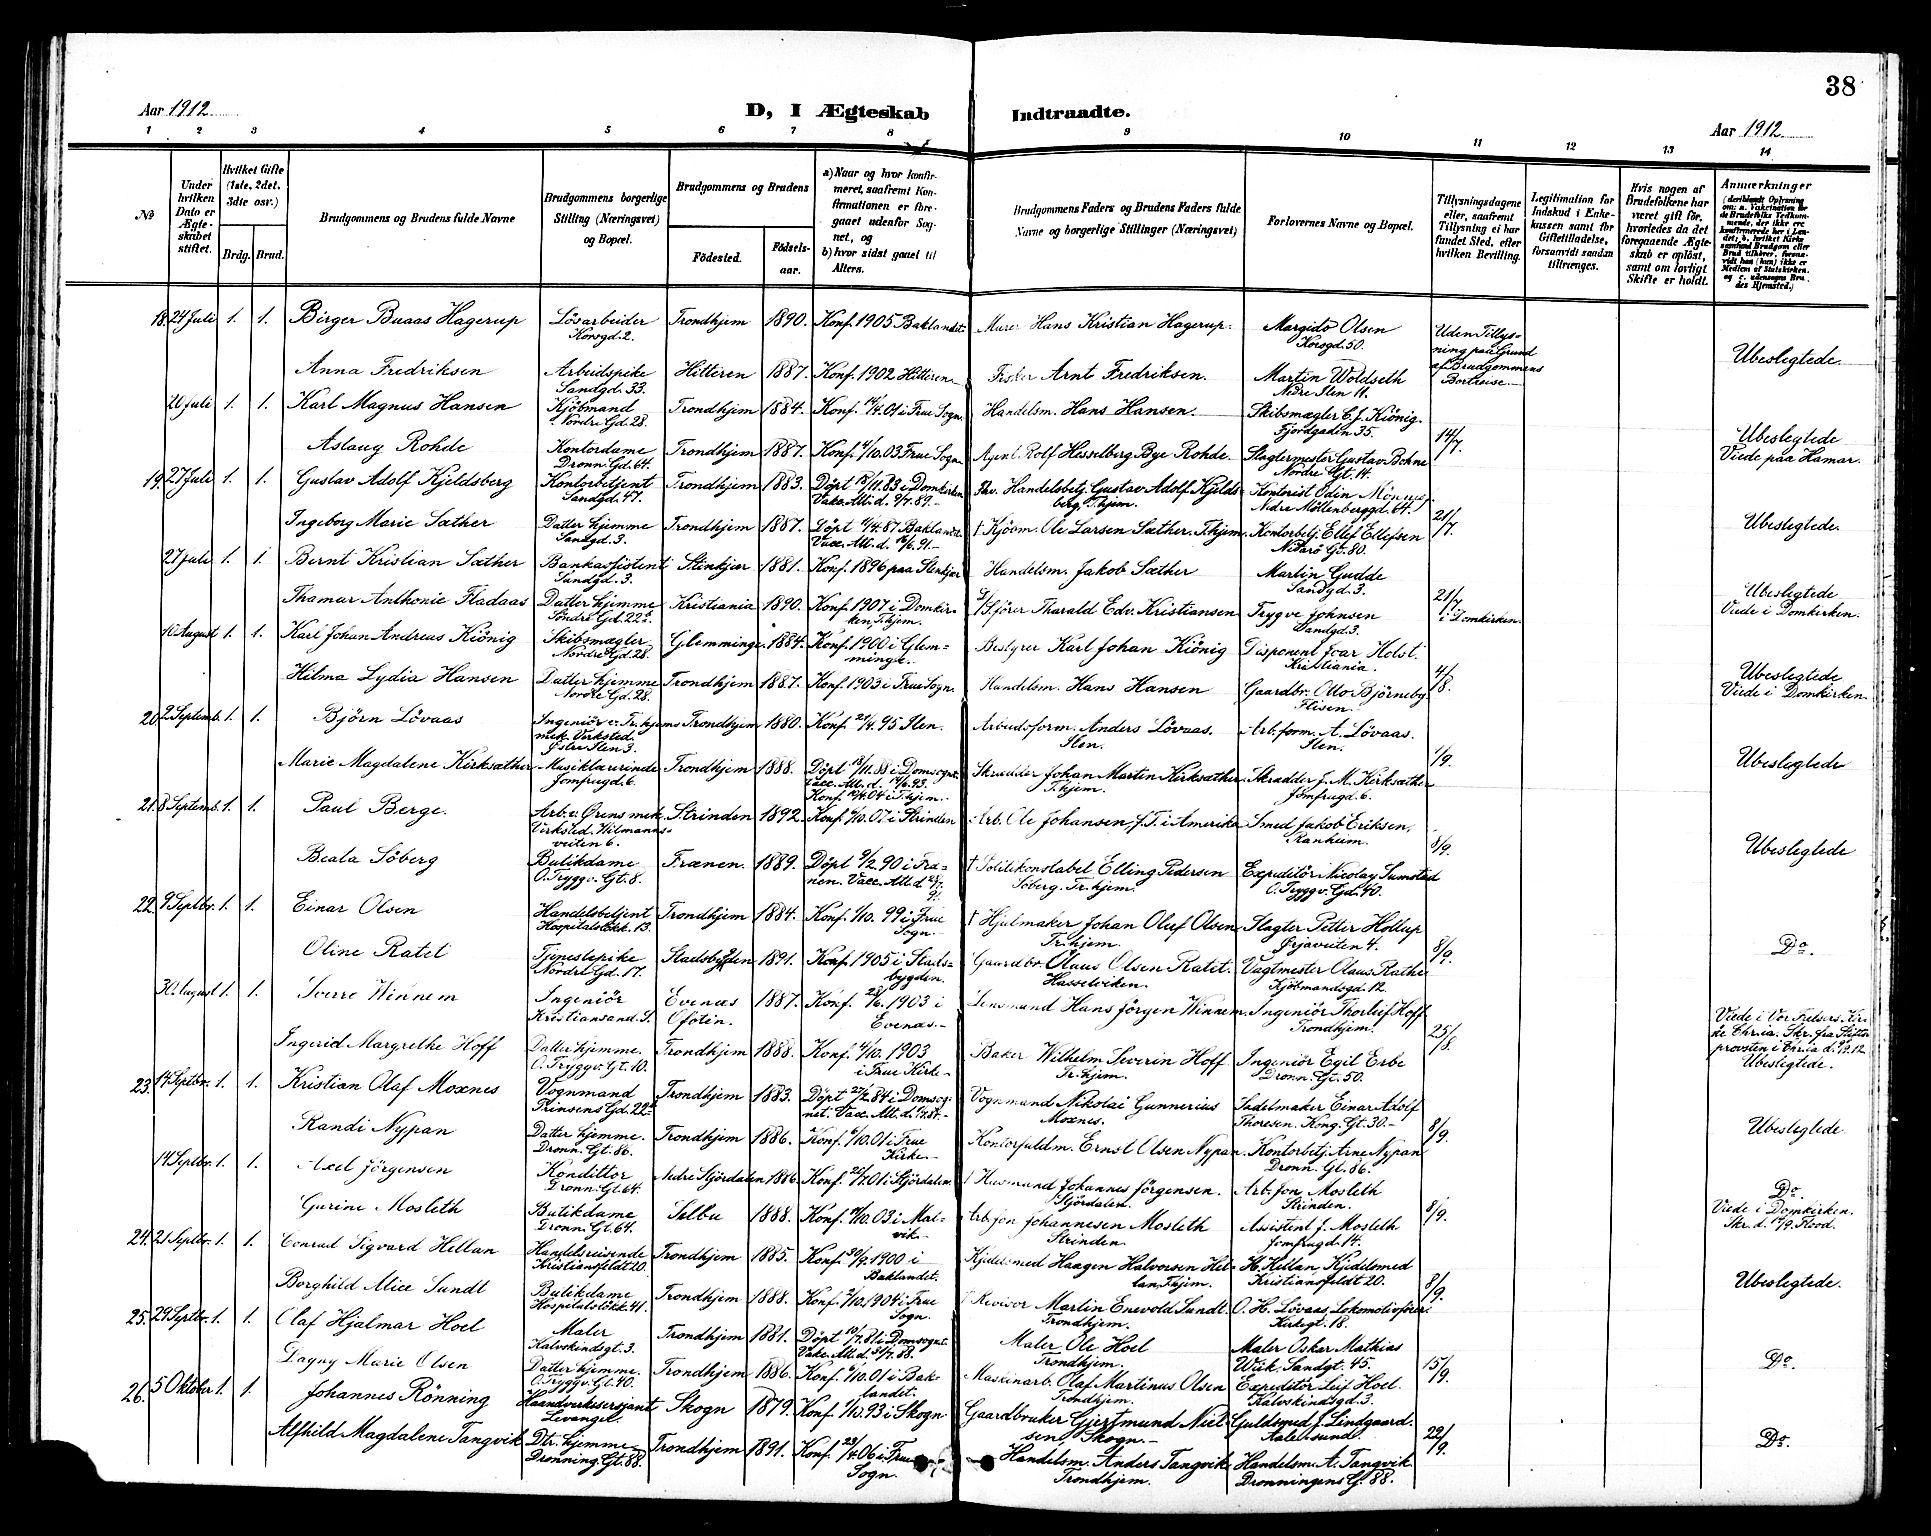 38
Aar 1912
D, I Ægteskab Indtraadte.
Aar 1912
1 2 3 4 5 6 7 8 9 10 11 12 13 14
No
Under hvilken Dato er Ægteskabet stiftet.
Hvilket Gifte (1ste, 2det, 3dte osv.)
Brdg. Brud.
Brudgommens og Brudens fulde Navne
Brudgommens borgerlige Stilling (Næringsvei) og Bopæl.
Brudgommens og Brudens
Fødested.
Fødselsaar.
a) Naar og hvor konfirmeret, saafremt Konfirmationen er foregaaet udenfor Sognet, og
b) hvor sidst gaaet til Alters.
Brudgommens Faders og Brudens Faders fulde Navne og borgerlige Stillinger (Næringsvei)
Forlovernes Navne og Bopæl.
Tillysningsdagene eller, saafremt Tillysning ei har fundet Sted, efter hvilken Bevilling.
Legitimation for Indskud i Enkekassen samt for Giftetilladelse, forsaavidt saadan tiltrænges.
Hvis nogen af Brudefolkene har været gift før, hvorledes da det foregaaende Ægteskab er opløst, samt om lovligt Skifte er holdt.
Anmærkninger
18. 24 Juli 1. 1. Birger Buaas Hagerup Lövarbeider Korsgd. 2. Trondhjem 1890. Konf. 1905 Baklandet Murer Hans Kristian Hagerup. Margido Olsen Korsgd. 50. Uden Tillysning paa Grund af Brudgommens Bortreise
Anna Fredriksen Arbeidspike Sandgd. 33. Hitteren 1887. Konf. 1902 Hitteren Fisker Arnt Fredriksen. Martin Woldseth Nedre Ilen 11. Ubeslegtede.
20 Juli 1. 1. Karl Magnus Hansen Kjöbmand Nordre Gd. 28. Trondhjem 1884. Konf. 14/4. 01 i Frue Sogn. Handelsm. Hans Hansen. Skibsmægler C. J. Kiönig. Fjordgaden 35. 14/7.
Aslaug Rohde Kontordame Dronn. Gd. 64. Trondhjem 1887. Konf. 4/10. 03 Frue Sogn. Agent Rolf Hesselberg Bye Rohde. Slagtermester Gustav Bohne Nordre Gt. 14. Ubeslegtede Viede paa Hamar.
19. 27 Juli 1. 1. Gustav Adolf Kjeldsberg Kontorbetjent Sandgd. 47. Trondhjem 1883. Döpt 18/11. 83 i Domkirken Vakc. Att. d. 9/7. 89. Fhv. Handelsbetj. Gustav Adolf Kjeldsberg, T.hjem. Kontorist Odin Mönnes, Nedre Möllenberggd. 64. 21/7.
Ingeborg Marie Sæther Datter hjemme Sandgd. 3. Trondhjem 1887. Döpt 11/4. 87 Baklandet. Vacc. Att. d. 19/6. 91. † Kjöbm. Ole Larsen Sæther. T.hjem. Kontorbetj. Ellef Ellefsen Nidarö Gt. 80. Ubeslegtede.
27 Juli 1. 1. Bernt Kristian Sæther Bankassistent Sandgd. 3. Stenkjær 1881. Konf. 1896 paa Stenkjær Handelsm. Jakob Sæther Martin Gudde Sandgd. 3. 21/7 i Domkirken.
Thamar Anthonie Fladaas Datter hjemme Söndre Gd. 22. Kristiania 1890. Konf. 1907 i Domkirken, T.hjem. S/Sförer Tharald Edv. Kristiansen Trygve Johnsen Sandgd. 3. Ubeslegtede Viede i Domkirken.
10 August 1. 1. Karl Johan Andreas Kiönig Skibsmægler Nordre Gd. 28. Glemminge 1884. Konf. 1900 i Glemminge. Bestyrer Karl Johan Kiönig Disponent Ivar Holst. Kristiania. 4/8.
Hilma Lydia Hansen Datter hjemme Nordre Gd. 28. Trondhjem 1887. Konf. 1903 i Frue Sogn. Handelsm. Hans Hansen Gaardbr. Otto Björneby Flisen. Ubeslegtede Viede i Domkirken.
20. 2 Septemb. 1. 1. Björn Lövaas Ingeniör v. Tr.hjems mek. Verksted. Östre Ilen 3. Trondhjem 1880. Konf. 21/4. 95 Ilen. Arbeidsform. Anders Lövaas. Ilen. Arb. form. A. Lövaas. Ilen. 1/9.
Marie Magdalene Kirksæther Musiklærerinde Jomfrugd. 6. Trondhjem 1888. Döpt 18/11. 88 i Domsognet. Vacc. Att. d. 14/6. 93. Konf. 10/4. 04 i T.hjem. Skrædder Johan Martin Kirksæther. T.hjem. Skrædder J. M. Kirksæther Jomfrugd. 6. Ubeslegtede
21. 8 Septemb. 1. 1. Paul Berge. Arb. v. Ørens mek. Verksted. Hilmannsveiten 6. Strinden 1892. Konf. 6/10. 07 i Strinden Arb. Ole Johansen, f. T. i Amerika Smed Jakob Eriksen, Ranheim. 8/9.
Beata Söberg Butikdame O. Tryggv. Gt. 8. Frænen. 1889. Döpt 9/2. 90 i Frænen. Vacc. Att. d. 28/7. 91. † Politikonstabel Elling Pedersen Söberg. Tr.hjem. Expeditör Nicolay Sumstad O. Tryggv. Gd. 40. Ubeslegtede
22. 9 Septbr. 1. 1. Einar Olsen Handelsbetjent Hospitalslökk. 13. Trondhjem 1884. Konf. 1/10. 99 i Frue Sogn. † Hjulmaker Johan Oluf Olsen Tr.hjem. Slagter Petter Hollup Erjaveiten 4. 8/9.
Oline Ratet Tjenestepike Nordre Gd. 17. Stadsbygden 1891. Konf. 1905 i Stadsbygden. Gaardbr. Olaus Olsen Ratet. Hasselviken. Vagtmester Olaus Rathe Kjöbmandsgd. 12. Do.
30. August 1. 1. Sverre Winnem Ingeniör Kristiansand S. Evenæs Ofoten. 1887. Konf. 28/6. 1903 i Evenæs. Lensmand Hans Jörgen Winnem Ingeniör Thorleif Hoff Trondhjem. 25/8.
Ingerid Margrethe Hoff Datter hjemme. O. Tryggv. Gt. 10. Trondhjem 1888. Konf. 4/10. 1903 i Frue Kirke Baker Wilhelm Severin Hoff Tr.hjem. Ingeniör Egil Erbe Dronn. Gt. 50. Viede i Vor Frelsers Kirke Chr.ia. Skr. fra Stiftsprovsten i Chr.ia d. Ubeslegtede.
23. 14 Septbr. 1. 1. Kristian Olaf Moxnes Vognmand Prinsens Gd. 22 Trondhjem 1883. Döpt 27/2. 84 i Domsognet. Vacc. Att. d. Vognmand Nikolai Gunnerius Moxnes. Sadelmaker Einar Adolf Thoresen. Kong. Gt. 30. 8/9.
Randi Nypan Datter hjemme. Dronn. Gt. 86. Trondhjem 1886. Konf. 6/10. 01 i Frue Kirke Kontorfuldm. Ernst Olsen Nypan. Kontorbetj. Arne Nypan Dronn. Gt. 86. Ubeslegtede.
14 Septbr. 1. 1. Axel Jörgensen Konditor Dronn. Gt. 64. Nedre Stjördalen 1886. Konf. 01 i Stjördalen. † Husmand Johannes Jörgensen. Stjördalen. Arb. Jon Mosleth Strinden. 8/9.
Gurine Mosleth Butikdame Dronn. Gt. 64. Selbu 1888. Konf. 03 i Malvik. Arb. Jon Johannesen Mosleth Strinden. Assistent J. Mosleth Jomfrugd. 14. Do. Viede i Domkirken. Skr. d. 17/9. Flood.
24. 21 Septbr. 1. 1. Conrad Sigvard Hellan Handelsreisende Kristiansfeldt 20. Trondhjem 1885. Konf. 30/9. 1900 i Baklandet. Kjedelsmed Haagen Halvorsen Hellan, T.hjem. H. Hellan, Kjedelsmed Kristiansfeldt 20. 8/9.
Borghild Alice Sundt Butikdame Hospitalslökk. 41. Trondhjem 1888. Konf. 2/10. 1904 i Frue Sogn. † Revisor Martin Enevold Sundt. Trondhjem. O. H. Lövaas, Lokomotivförer Kirkegt. 18. Ubeslegtede.
25. 29 Septbr. 1. 1. Olaf Hjalmar Hoel Maler Kalvskindsgt. 3. Trondhjem 1881. Döpt 10/7. 81 i Domsognet. Vakc. Att. d. 31/7. 88. Maler Ole Hoel Trondhjem. Maler Oskar Mathias Wiik. Sandgt. 45. 15/9.
Dagny Marie Olsen Datter hjemme. O. Tryggv. Gt. 40. Trondhjem 1886. Konf. 6/10. 01 i Baklandet. Maskinarb. Olaf Martinus Olsen Trondhjem. Expeditör Leif Hoel. Kalvskindsgd. 3. Do.
26. 5 Oktober 1. 1. Johannes Rönning Haandverkssersjant Levanger. Skogn 1879. Konf. 1/10. 93 i Skogn Gaardbruker Gjertmund Nielsen, Skogn. Guldsmed J. Lindgaard. Aalesund. 22/9.
Alfhild Magdalene Tangvik Dtr. hjemme Dronning. Gt. 88. Trondhjem 1891. Konf. 23/4. 06 i Frue Sogn. Handelsm. Anders Tangvik Trondhjem. Handelsm. A. Tangvik Dronningens G. 88. Do.